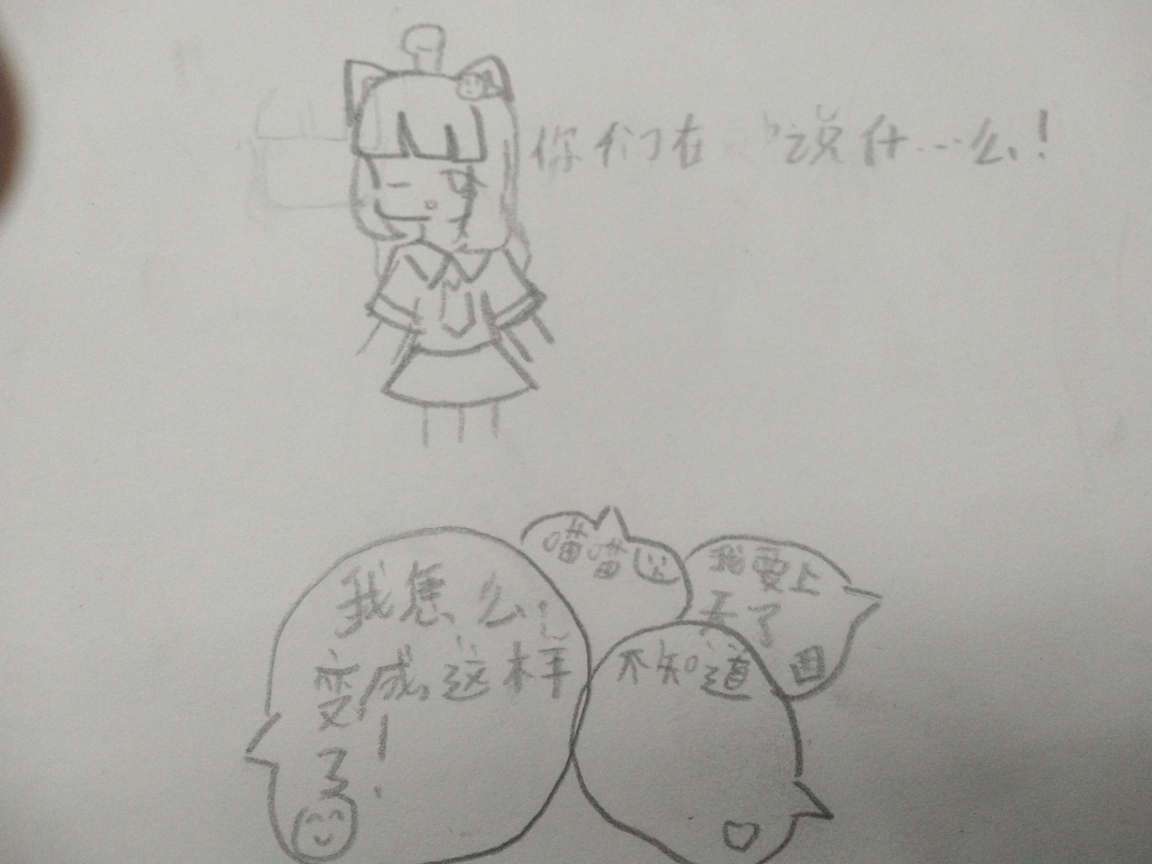 你们在说什…么！
喵喵
我要上
天了
我怎么
变成这样
了！
不知道